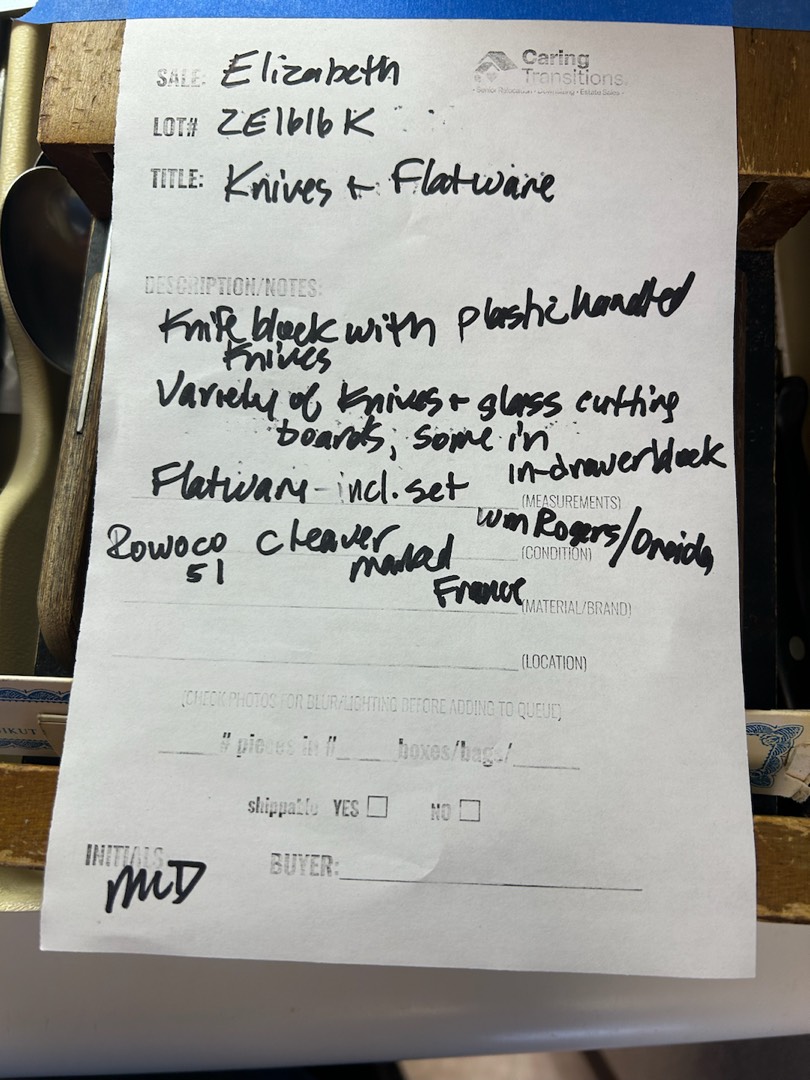 Caring
Transitions
SALE: Elizabeth
LOT# ZE1616K
TITLE: Knives + Flatware
DESCRIPTION/NOTES:
Knife block with plastic handled
knives
Variety of knives + glass cutting
boards, some in
in-drawer block
Flatware - incl. set
(MEASUREMENTS)
Wm Rogers/Oneida
Rowoco cleaver
(CONDITION)
51 marked
France
(MATERIAL/BRAND)
(LOCATION)
(CHECK PHOTOS FOR BLUR/LIGHTING BEFORE ADDING TO QUEUE)
# pieces in #____ boxes/bags/
shippable YES NO
INITIALS BUYER:
MCD
IKUT